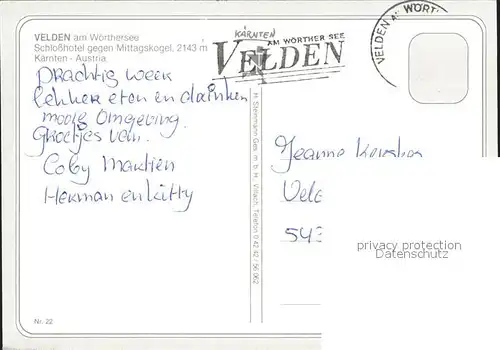 VELDEN am Wörthersee
Schloßhotel gegen Mittagskogel, 2143 m
Kärnten - Austria
KÄRNTEN
AM WÖRTHER SEE
VELDEN
VELDEN AM WÖRT
Prachtig weer
lekker eten en drinken
mooie omgeving.
Groetjes van.
Coby Martien
Herman en Kitty
Jeanne
Veld
543
privacy protection
Datenschutz
Nr. 22